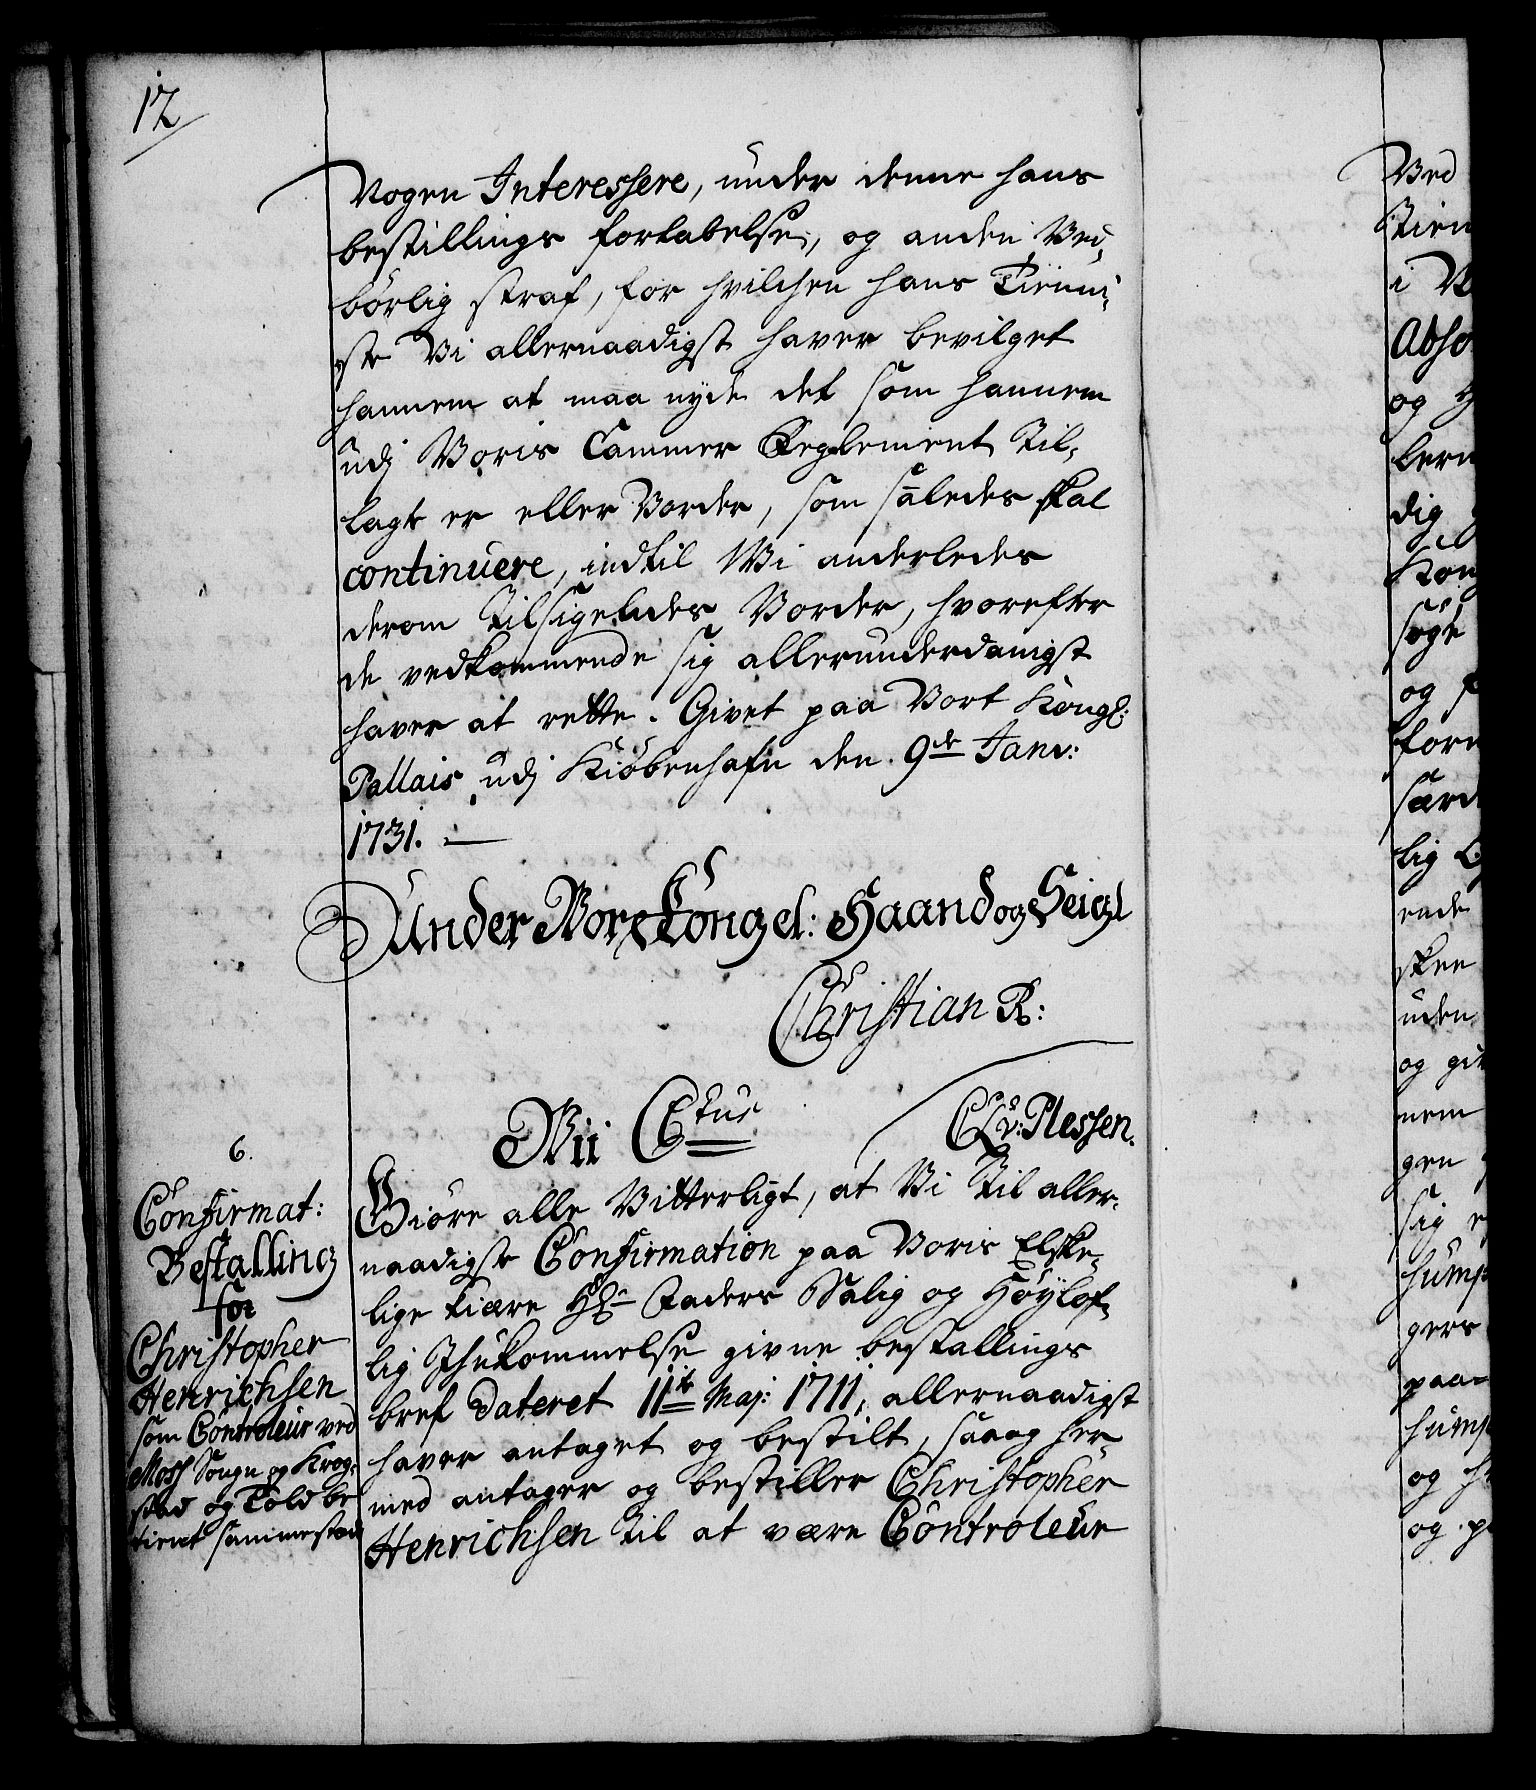 12
Nogen Interessere, under denne hans
bestillings fortabelse, og anden Ved,
börlig straf, for hvilchen hans Tienni,
ste Vi allernaadigst haver bevilget
hannem at maa nyde det som hannem
udj Voris Cammer Reglement til,
lagt er eller Vorder, som således skal
continuere, indtil Wi anderledes
derom tilsigendes Vorder, hvorefter
de vedkommende sig allerunderdanigst
haver at rette. Givet paa Vort Kongl:
Pallais udj Kiöbenhafn den 9de Janv:
1731. —
Under Vor Kongel: Haand og Seigl
Christian R:
CLv: Plessen.
Wii Ctus
6.
Confirmat:
Bestalling
for
Christopher
Henrichsen
som Controleur ved
Moss Sougn og Krog,
stad og Told be
tient sammestæd
Giöre alle Vitterligt, at Vi til aller,
naadigste Confirmation paa Voris Elske,
lige Kiære Hr Faders Salig og Höylof,
lig Ihukommelse givne bestallings
bref Dateret 11te Maj: 1711, allernaadigst
haver antaget og bestilt, saaog her,
med antager og bestiller Christopher
Henrichsen til at være Controleur
Ved
Tien
i V
Abso
og H
lern
dig
Kong
søgt
og f
forn
særd
lig
ende
skee
uden
og gi
nem
gen
sig
hump
gers
paa-
hump
og
og p